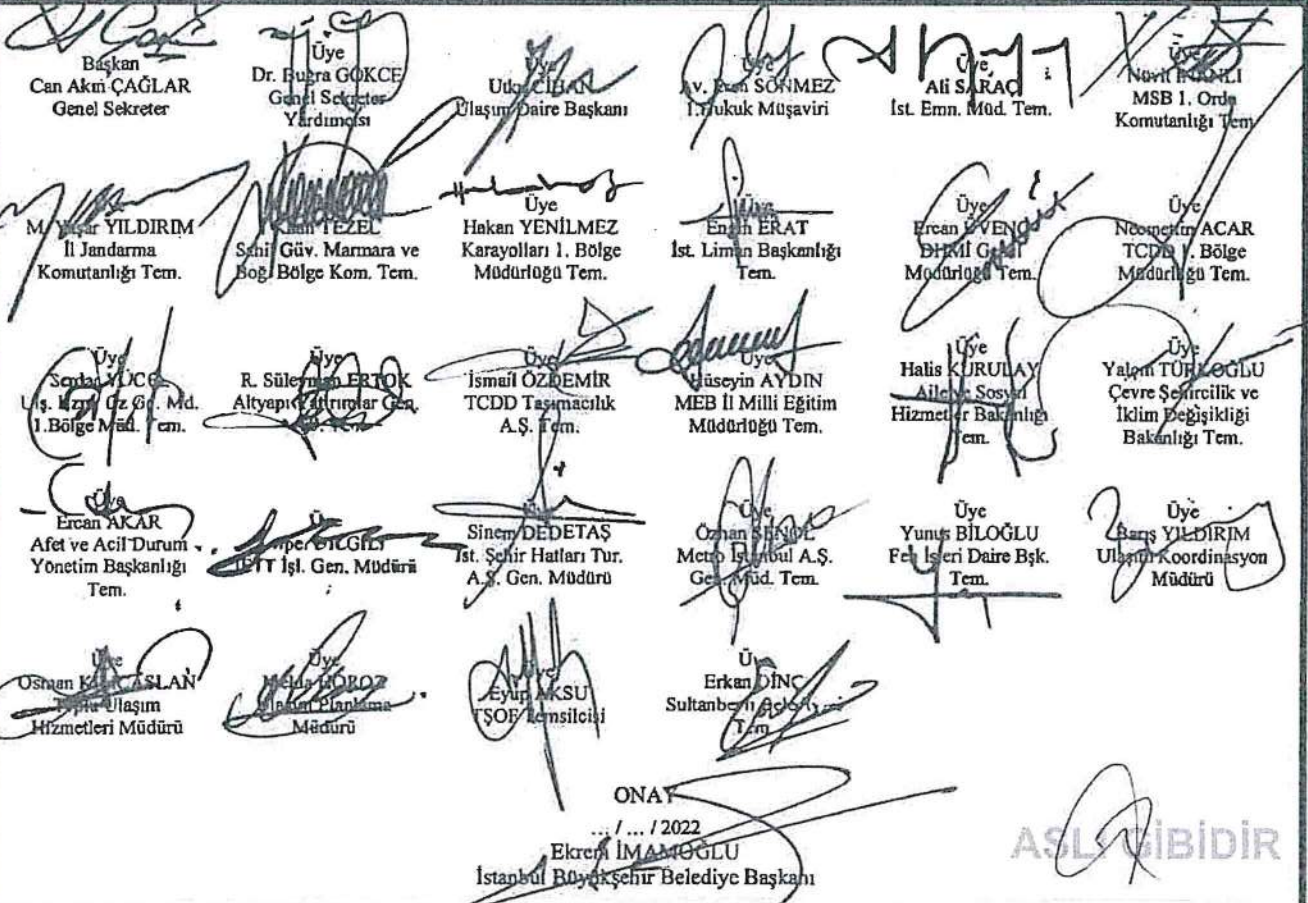 Başkan
Can Akın ÇAĞLAR
Genel Sekreter
Üye
Dr. Buğra GÖKCE
Genel Sekreter
Yardımcısı
Üye
Utku CİHAN
Ulaşım Daire Başkanı
Üye
Av. Eren SÖNMEZ
1.Hukuk Müşaviri
Üye
Ali SARAÇ
İst. Emn. Müd. Tem.
MSB 1. Ordu
Komutanlığı Tem.
M. Yaşar YILDIRIM
İl Jandarma
Komutanlığı Tem.
TEZEL
Sahil Güv. Marmara ve
Boğ. Bölge Kom. Tem.
Üye
Hakan YENİLMEZ
Karayolları 1. Bölge
Müdürlüğü Tem.
Üye
Engin ERAT
İst. Liman Başkanlığı
Tem.
Üye
Ercan
DHMİ Genel
Müdürlüğü Tem.
Üye
Necmettin ACAR
TCDD 1. Bölge
Müdürlüğü Tem.
Üye
Serdar YÜCEL
1.Bölge Müd. Tem.
Üye
R. Süleyman ERTOK
Altyapı Yatırımlar Gen.
Üye
İsmail ÖZDEMİR
TCDD Taşımacılık
A.Ş. Tem.
Üye
Hüseyin AYDIN
MEB İl Milli Eğitim
Müdürlüğü Tem.
Üye
Halis KURULAY
Aile ve Sosyal
Hizmetler Bakanlığı
Tem.
Üye
Yalçın TÜRKOĞLU
Çevre Şehircilik ve
İklim Değişikliği
Bakanlığı Tem.
Üye
Ercan AKAR
Afet ve Acil Durum
Yönetim Başkanlığı
Tem.
Alper BİLGİLİ
İETT İşl. Gen. Müdürü
Üye
Sinem DEDETAŞ
İst. Şehir Hatları Tur.
A.Ş. Gen. Müdürü
Üye
Özhan ŞENOL
Metro İstanbul A.Ş.
Gen. Müd. Tem.
Üye
Yunus BİLOĞLU
Fen İşleri Daire Bşk.
Tem.
Üye
Barış YILDIRIM
Ulaşım Koordinasyon
Müdürü
Üye
Osman
Toplu Ulaşım
Hizmetleri Müdürü
Üye
Melda HOROZ
Ulaşım Planlama
Müdürü
Üye
Eyüp AKSU
TŞOF Temsilcisi
Üye
Erkan DİNÇ
Sultanbeyli Belediyesi
Tem.
ONAY
... / ... / 2022
Ekrem İMAMOĞLU
İstanbul Büyükşehir Belediye Başkanı
ASLI GİBİDİR